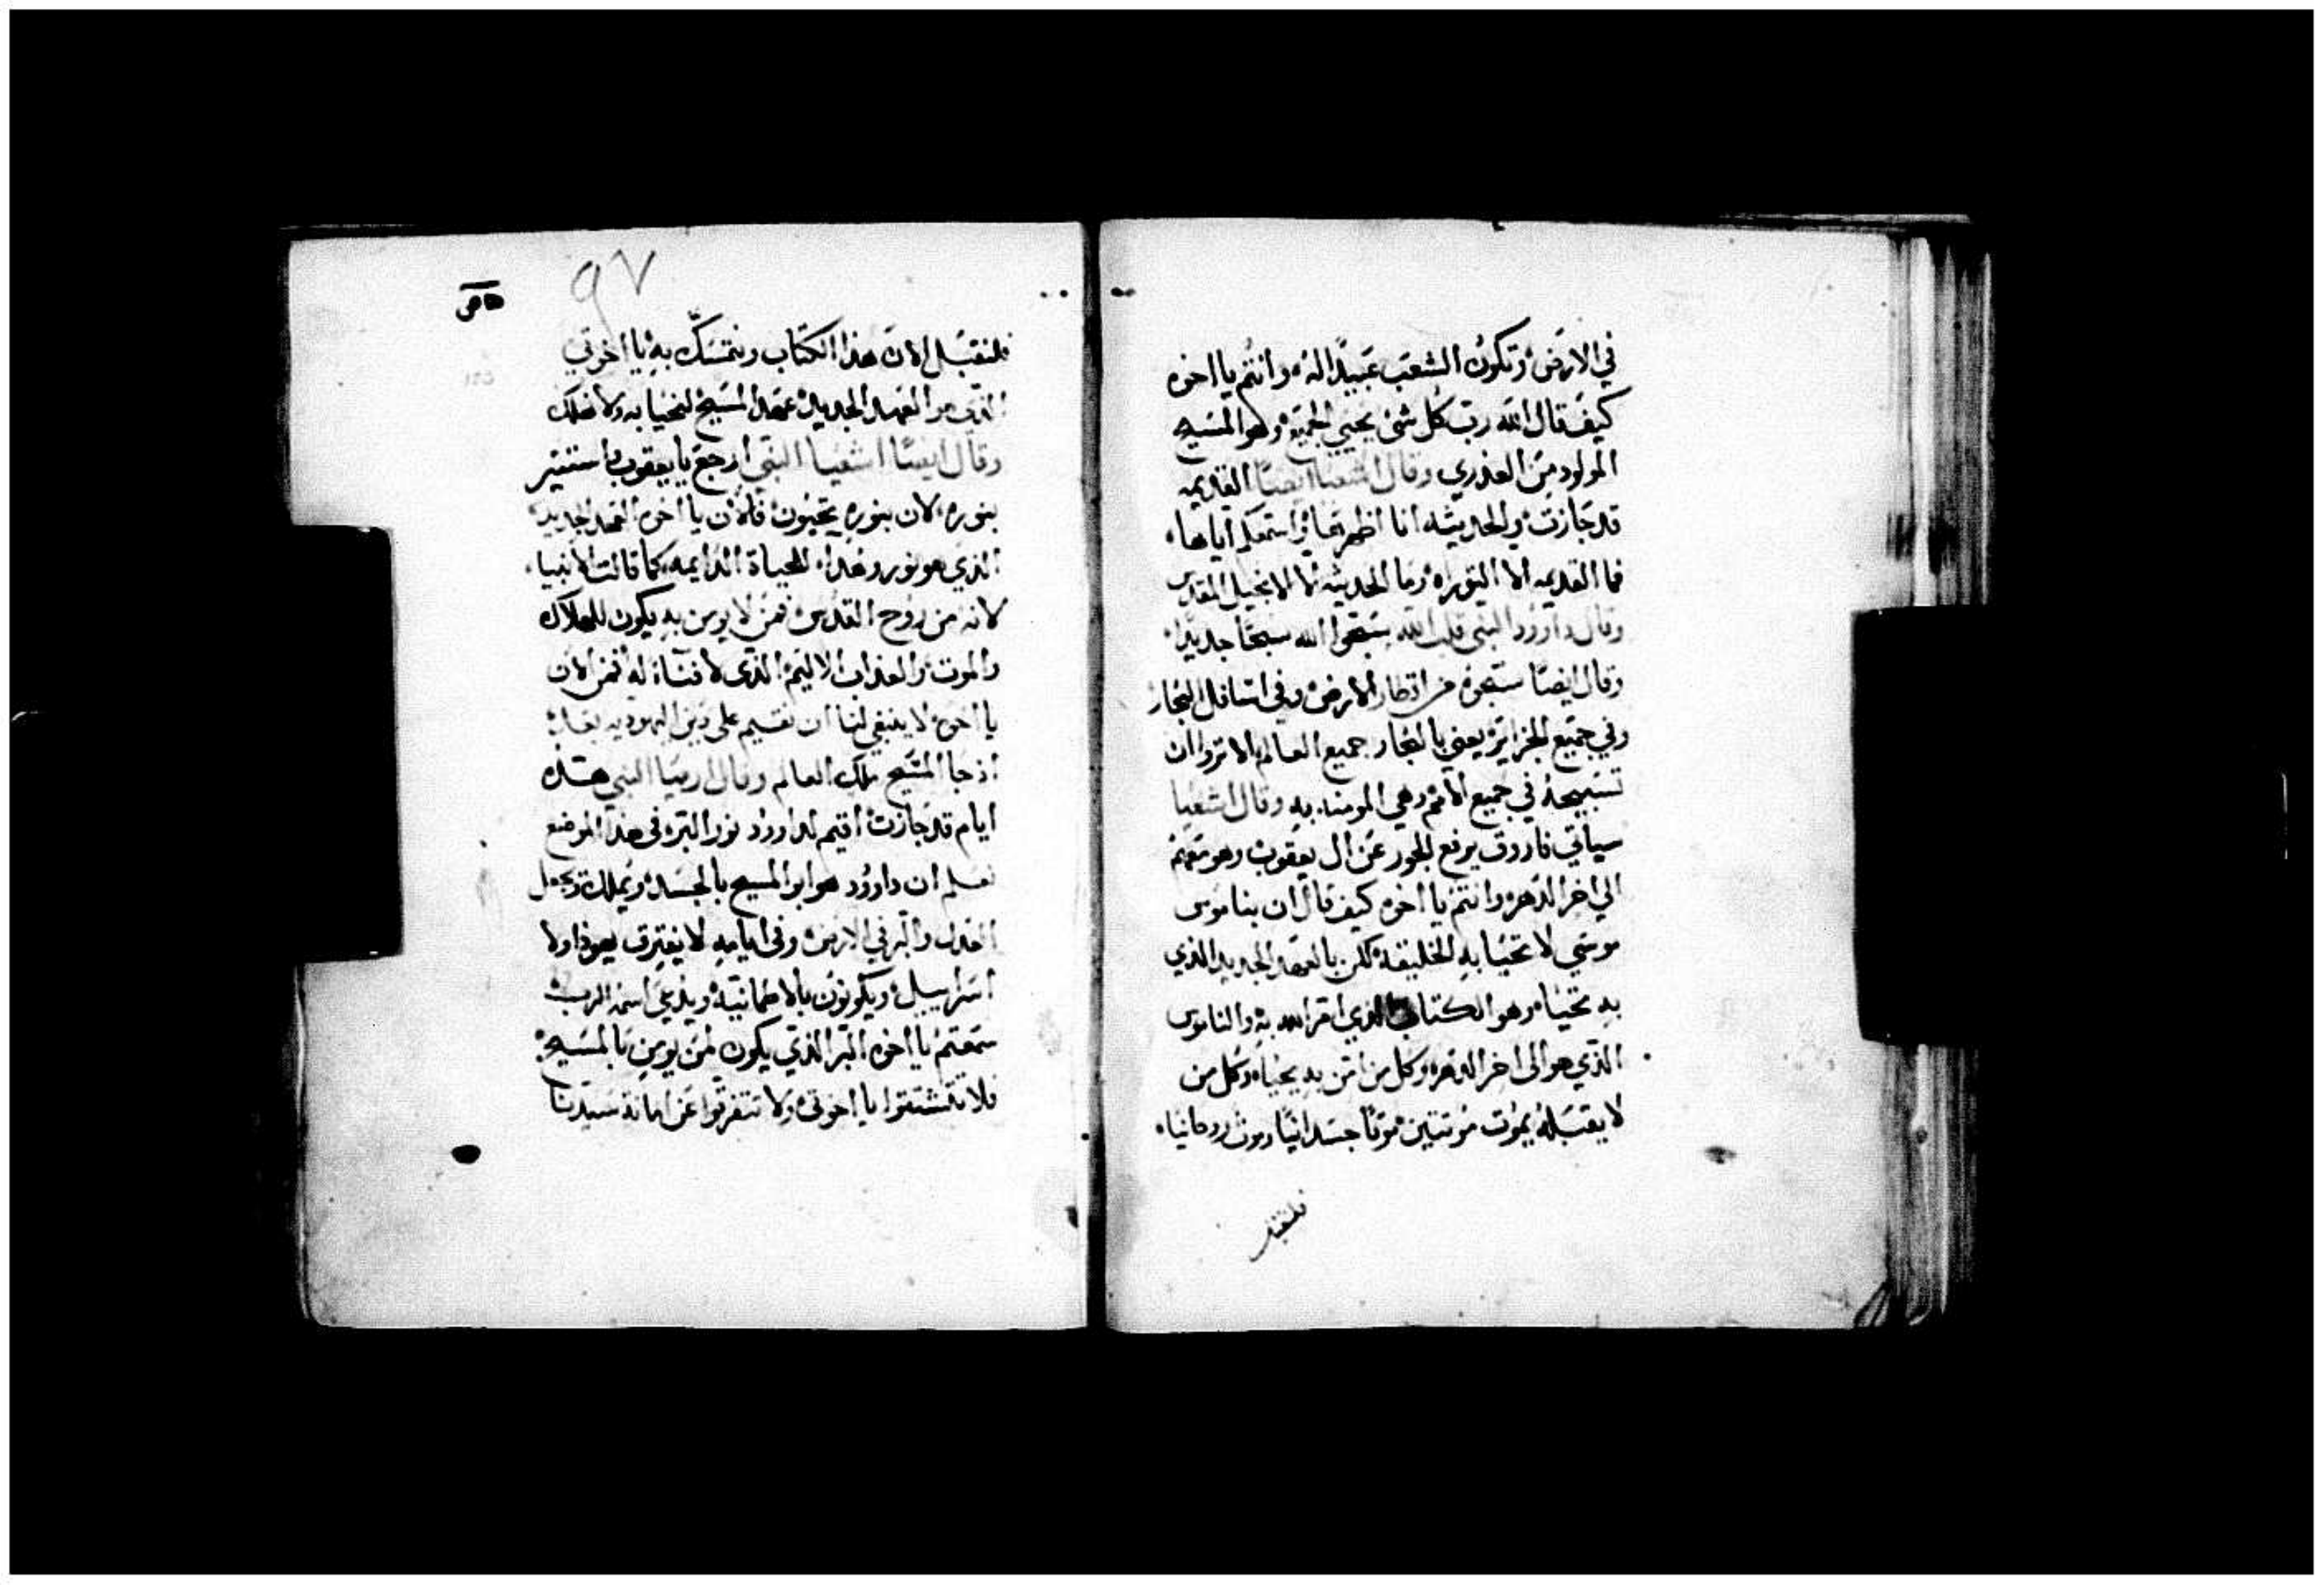 في الارض وتكون الشعب عبيدًا له وانتم يا اخوه
كيف قال الله رب كل شي يحيي الجميع وهو المسيح
المولود من العذري وقال اشعيا ايضًا القديمه
قد جازت والحديثه انا اظهرها واستمعكم اياها
فما القديمه الا التوراه وما الحديثه الا الانجيل المقدس
وقال داوود النبي قلب الله سبحوا الله سبحًا جديدًا
وقال ايضًا سبحوه من اقطار الارض وفي اسافل البحار
وفي جميع الجزاير يعني بالبحار جميع العالم الا تروا ان
تسبيحه في جميع الامم وهي المومنه به وقال اشعيا
سياتي فاروق يرفع الجور عن ال يعقوب وهو معهم
الي اخر الدهر وانتم يا اخوه كيف قال ان بناموس
موسي لا تحيا به الخليقه لكن بالعهد الجديد الذي
به تحيا وهو الكتاب الذي امر الله به والناموس
الذي هو الى اخر الدهر وكل من امن به يحيا وكل من
لا يقبله يموت موتتين موتًا جسدانيًا وموت روحانيا
فلنقبل
٩٧
فلنقبل الان هذا الكتاب ونتمسك به يا اخوتي
الذي هو العهد الجديد عهد المسيح لنحيا به ولا نهلك
وقال ايضًا اشعيا النبي ارجع يا يعقوب واستنير
بنوره لان بنوره تحيون فالان يا اخوه العهد الجديد
الذي هو نور وغدا للحياة الدايمه كما قالت الانبيا
لانه من روح القدس فمن لا يومن به يكون للهلاك
والموت والعذاب الاليم الذى لا فناء له فمن الان
يا اخوه لا ينبغي لنا ان نقيم على دين اليهوديه بعد
اذ جا المسيح ملك العالم وقال ارميا النبي هذه
ايام قد جازت اقيم لداوود نور البر وفى هذا الموضع
نعلم ان داوود هو ابو المسيح بالجسد ويملك ويجعل
العدل والبر في الارض وفى ايامه لا يفترق يهوذا ولا
اسراييل ويكونون بالاطمانيه ويدعى اسمه الرب
سمعتم يا اخوه البر الذي يكون لمن يومن بالمسيح
فلا تتشتتوا يا اخوتي ولا تتفرقوا عن امانة سيدنا